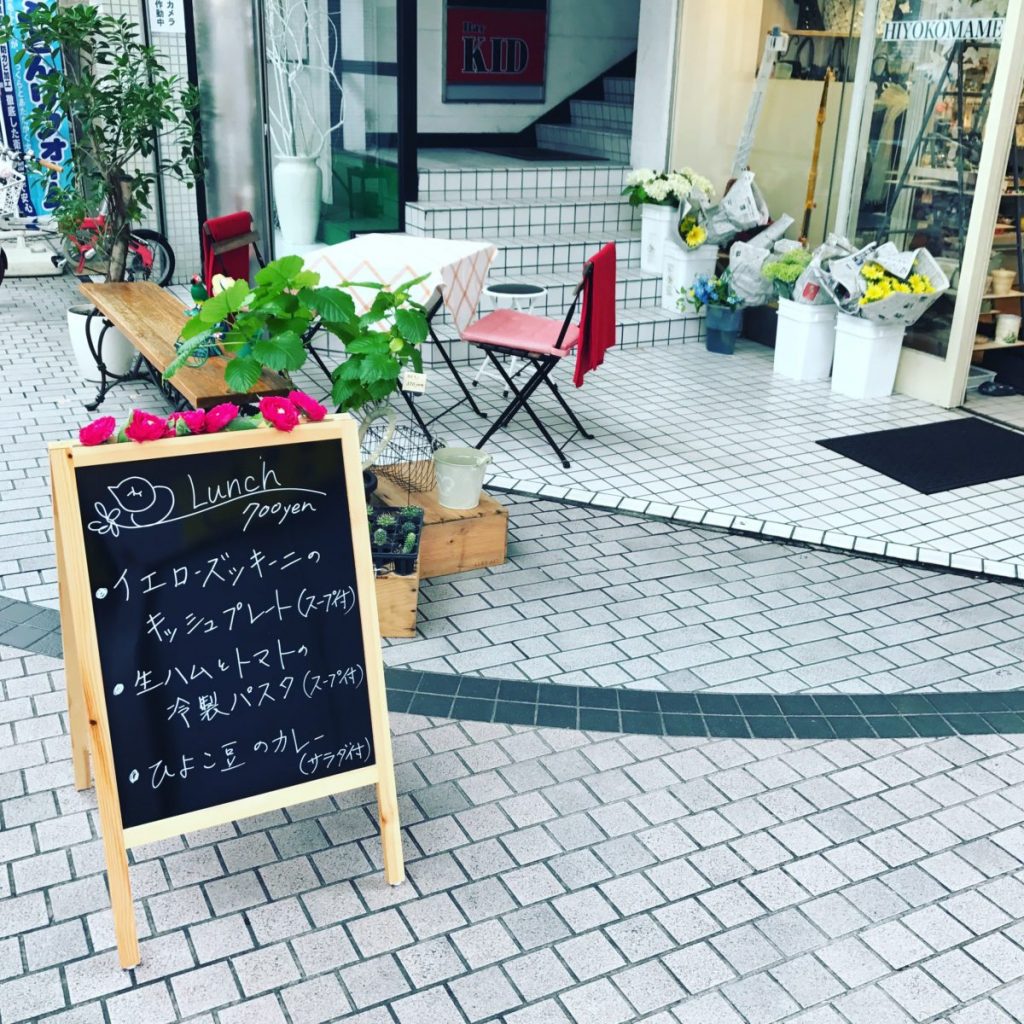 カメラ
作動中
ふとんリフォーム
防カビ加工
HIYOKOMAME
KID
Lunch
700yen
・イエローズッキーニの
キッシュプレート(スープ付)
・生ハムとトマトの
冷製パスタ(スープ付)
・ひよこ豆のカレー
(サラダ付)